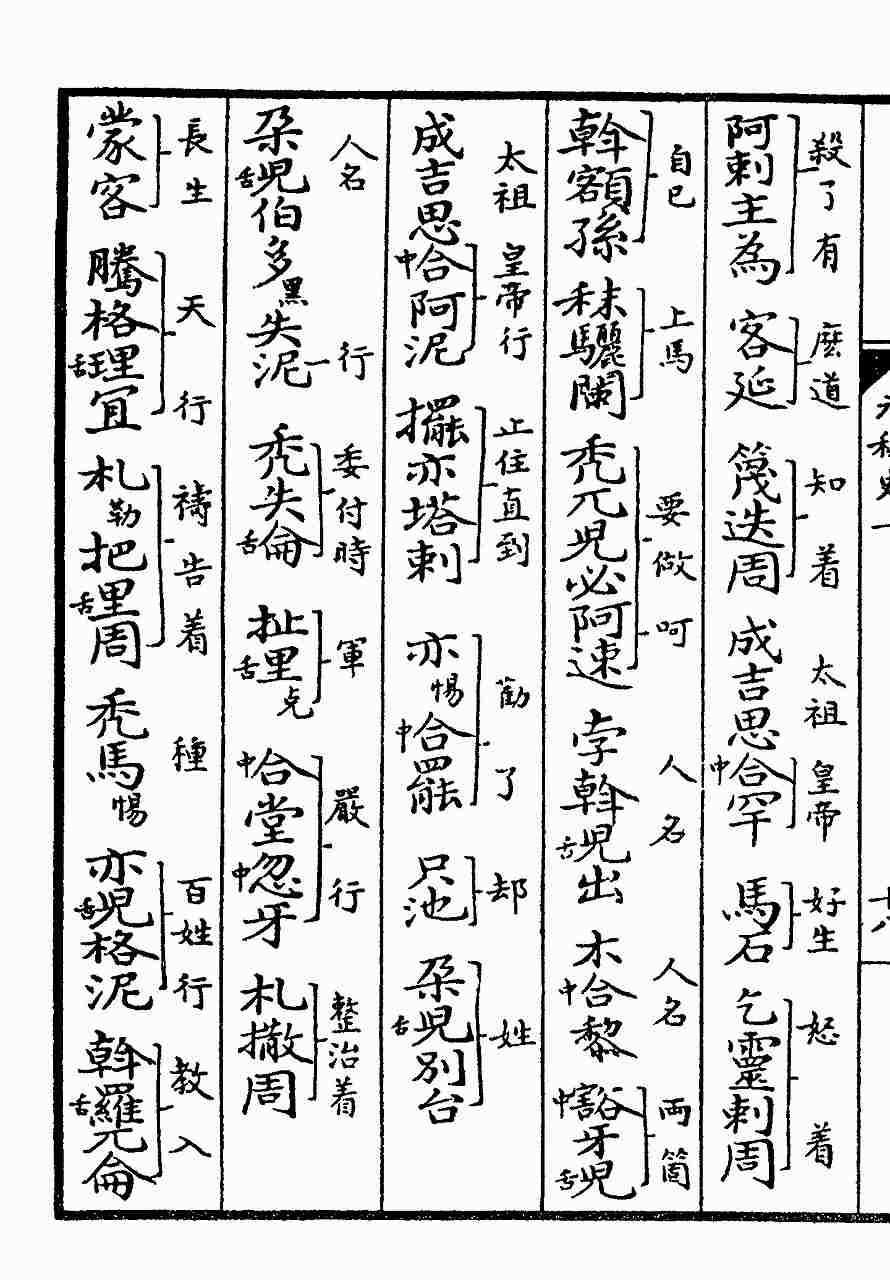 殺了有 麽道 知着 太祖皇帝 好生 怒着
阿剌主為 客延 篾迭周 成吉思中合罕 馬石 乞靈剌周
自己 上馬 要做呵 人名 人名 両箇
斡額孫 秣驪闌 禿兀兒必阿速 孛斡舌兒出 木中合黎 中豁牙舌兒
太祖皇帝行 止住直到 勸了 却 姓
成吉思中合阿泥 擺亦塔剌 亦惕中合罷 只池 朵舌兒別台
人名 行 委付時 軍 嚴行 整治着
朵舌兒伯多黑失泥 禿失舌侖 扯舌里克 中合堂中忽牙 札撒周
長生 天行 禱告着 種 百姓行 教入
蒙客 騰格舌理宜 札勒把舌里周 禿馬惕 亦舌兒格泥 斡舌羅兀侖